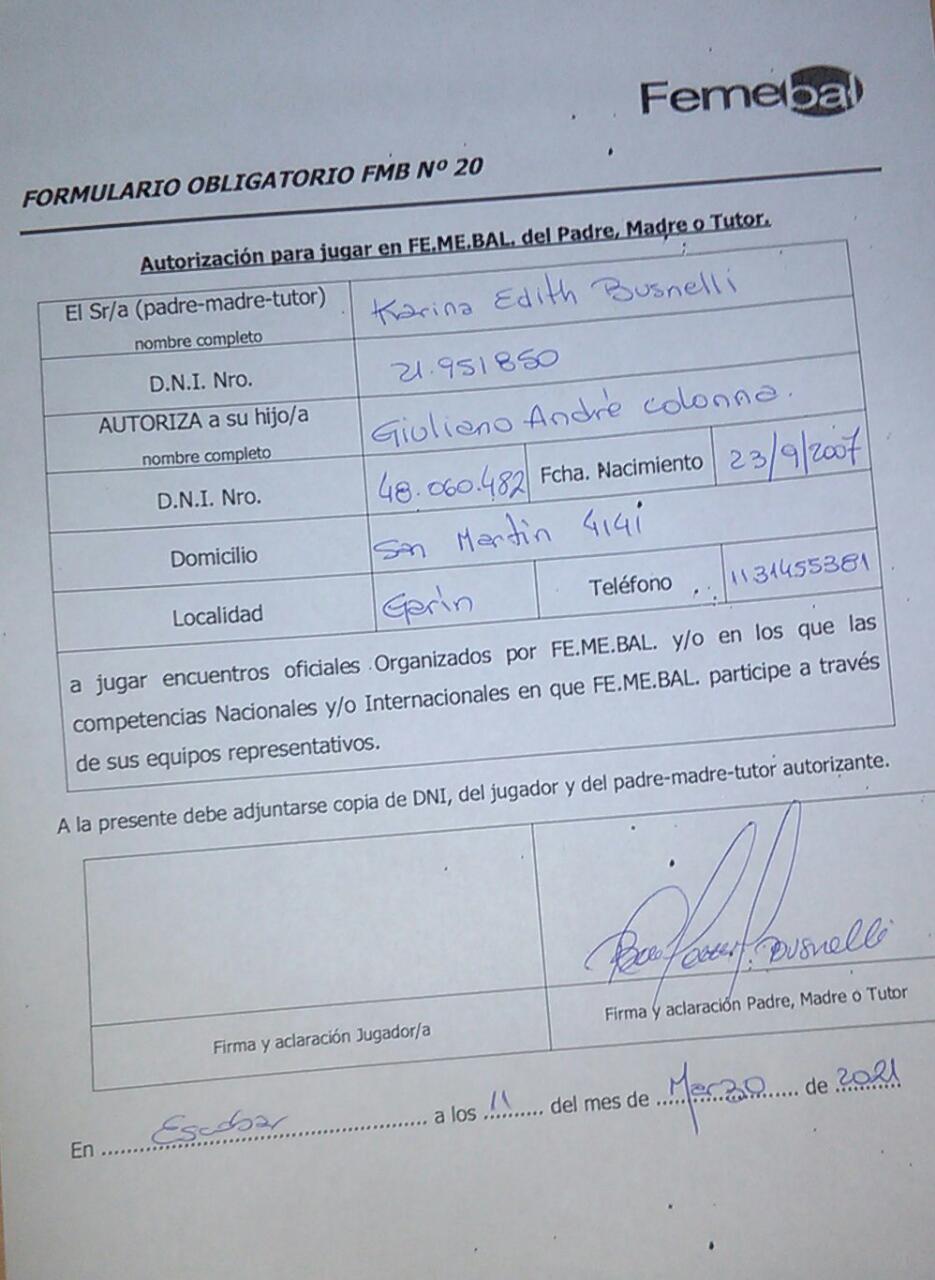 Femebal
FORMULARIO OBLIGATORIO FMB Nº 20
Autorización para jugar en FE.ME.BAL. del Padre, Madre o Tutor.
El Sr/a (padre-madre-tutor) Karina Edith Busnelli
nombre completo
D.N.I. Nro. 21.951850
AUTORIZA a su hijo/a Giuliano Andrè Colonna.
nombre completo
D.N.I. Nro. 48.060.482 Fcha. Nacimiento 23/9/2007
Domicilio San Martin 4141
Localidad Garin Teléfono 1131455381
a jugar encuentros oficiales Organizados por FE.ME.BAL. y/o en los que las
competencias Nacionales y/o Internacionales en que FE.ME.BAL. participe a través
de sus equipos representativos.
A la presente debe adjuntarse copia de DNI, del jugador y del padre-madre-tutor autorizante.
Busnelli
Firma y aclaración Jugador/a Firma y aclaración Padre, Madre o Tutor
En Escobar a los 11 del mes de Marzo de 2021